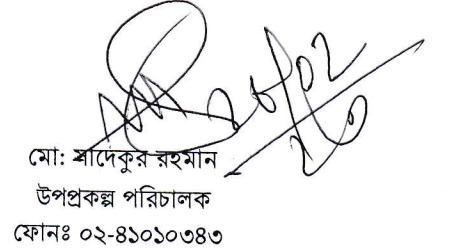 মো: সাদেকুর রহমান
উপপ্রকল্প পরিচালক
ফোনঃ ০২-৪১০১০৩৪৩